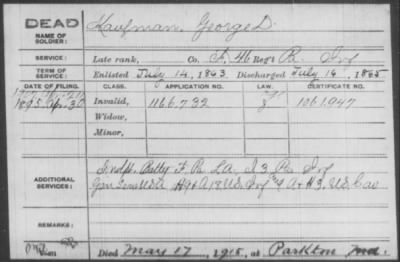 DEAD
NAME OF SOLDIER:
Kaufman, George D.
SERVICE:
Late rank, Co. F, 46 Reg't Pa. Inf
TERM OF SERVICE:
Enlisted July 14, 1863 Discharged July 16, 1865
DATE OF FILING. CLASS. APPLICATION NO. LAW. CERTIFICATE NO.
1895 Ap. 30 Invalid, 1166.732 1061.947
Widow,
Minor,
ADDITIONAL SERVICES:
Batty F. Pa L.A. I 3 Pa Inf
Gen Serv USA H9 & A 18 U.S. Inf & A & H 3, U.S. Cav
REMARKS:
Died May 17, 1915, at Parkton Md.